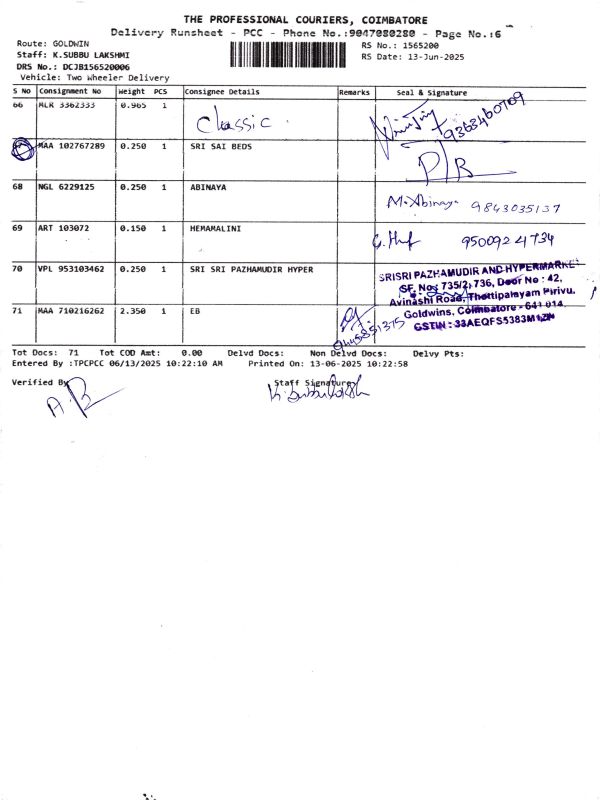 THE PROFESSIONAL COURIERS, COIMBATORE
Delivery Runsheet - PCC - Phone No.:9047080280 - Page No.:6
Route: GOLDWIN RS No.: 1565200
Staff: K.SUBBU LAKSHMI RS Date: 13-Jun-2025
DRS No.: DCJB156520006
Vehicle: Two Wheeler Delivery
S No Consignment No Weight PCS Consignee Details Remarks Seal & Signature
66 MLR 3362333 0.965 1 Classic 9363460709
MAA 102767289 0.250 1 SRI SAI BEDS
68 NGL 6229125 0.250 1 ABINAYA M.Abinaya 9843035137
69 ART 103072 0.150 1 HEMAMALINI 9500924734
70 VPL 953103462 0.250 1 SRI SRI PAZHAMUDIR HYPER
SRISRI PAZHAMUDIR AND HYPERMARKET
SF. No: 735/2, 736, Door No : 42,
Avinashi Road, Thottipalayam Pirivu,
Goldwins, Coimbatore - 641 014.
GSTIN : 33AEQFS5383M1ZN
71 MAA 710216262 2.350 1 EB 9445851375
Tot Docs: 71 Tot COD Amt: 0.00 Delvd Docs: Non Delvd Docs: Delvy Pts:
Entered By :TPCPCC 06/13/2025 10:22:10 AM Printed On: 13-06-2025 10:22:58
Verified By Staff Signature